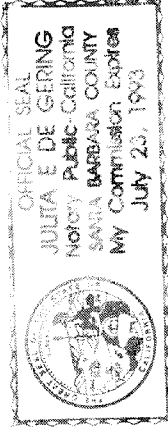 OFFICIAL SEAL
JULITA E DE GERING
Notary Public-California
SANTA BARBARA COUNTY
My Commission Expires
July 23, 1993